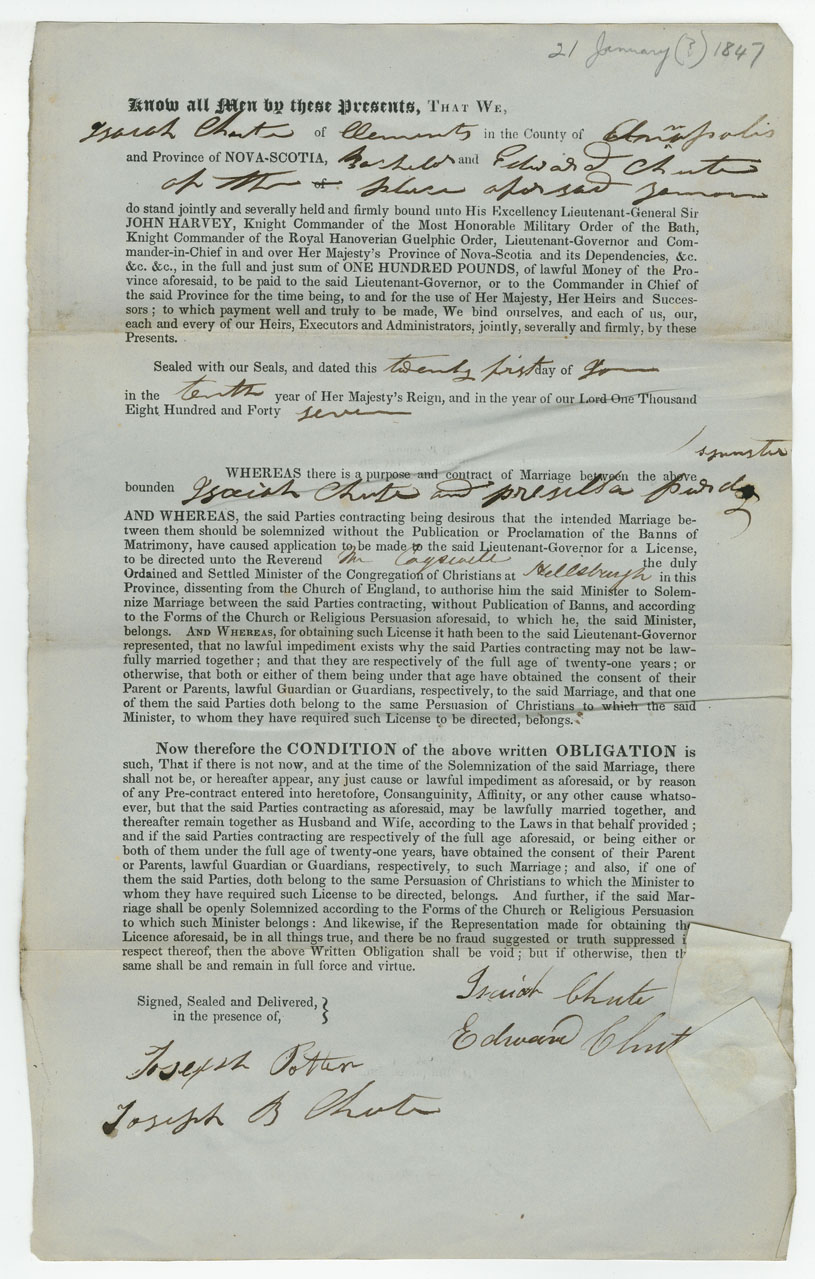 21 January (?) 1847
Know all Men by these Presents, THAT WE,
Isaiah Chute of Clements in the County of Annapolis
and Province of NOVA-SCOTIA, and Edward Chute
of the of place
do stand jointly and severally held and firmly bound unto His Excellency Lieutenant-General Sir
JOHN HARVEY, Knight Commander of the Most Honorable Military Order of the Bath,
Knight Commander of the Royal Hanoverian Guelphic Order, Lieutenant-Governor and Com-
mander-in-Chief in and over Her Majesty's Province of Nova-Scotia and its Dependencies, &c.
&c. &c., in the full and just sum of ONE HUNDRED POUNDS, of lawful Money of the Pro-
vince aforesaid, to be paid to the said Lieutenant-Governor, or to the Commander in Chief of
the said Province for the time being, to and for the use of Her Majesty, Her Heirs and Succes-
sors; to which payment well and truly to be made, We bind ourselves, and each of us, our,
each and every of our Heirs, Executors and Administrators, jointly, severally and firmly, by these
Presents.
Sealed with our Seals, and dated this twenty first day of
in the tenth year of Her Majesty's Reign, and in the year of our Lord One Thousand
Eight Hundred and Forty seven
spinster
WHEREAS there is a purpose and contract of Marriage between the above
bounden Isaiah Chute and presilla purdy
AND WHEREAS, the said Parties contracting being desirous that the intended Marriage be-
tween them should be solemnized without the Publication or Proclamation of the Banns of
Matrimony, have caused application to be made to the said Lieutenant-Governor for a License,
to be directed unto the Reverend Mr Cogswell the duly
Ordained and Settled Minister of the Congregation of Christians at Hillsburgh in this
Province, dissenting from the Church of England, to authorise him the said Minister to Solem-
nize Marriage between the said Parties contracting, without Publication of Banns, and according
to the Forms of the Church or Religious Persuasion aforesaid, to which he, the said Minister,
belongs. AND WHEREAS, for obtaining such License it hath been to the said Lieutenant-Governor
represented, that no lawful impediment exists why the said Parties contracting may not be law-
fully married together; and that they are respectively of the full age of twenty-one years; or
otherwise, that both or either of them being under that age have obtained the consent of their
Parent or Parents, lawful Guardian or Guardians, respectively, to the said Marriage, and that one
of them the said Parties doth belong to the same Persuasion of Christians to which the said
Minister, to whom they have required such License to be directed, belongs.
Now therefore the CONDITION of the above written OBLIGATION is
such, That if there is not now, and at the time of the Solemnization of the said Marriage, there
shall not be, or hereafter appear, any just cause or lawful impediment as aforesaid, or by reason
of any Pre-contract entered into heretofore, Consanguinity, Affinity, or any other cause whatso-
ever, but that the said Parties contracting as aforesaid, may be lawfully married together, and
thereafter remain together as Husband and Wife, according to the Laws in that behalf provided;
and if the said Parties contracting are respectively of the full age aforesaid, or being either or
both of them under the full age of twenty-one years, have obtained the consent of their Parent
or Parents, lawful Guardian or Guardians, respectively, to such Marriage; and also, if one of
them the said Parties, doth belong to the same Persuasion of Christians to which the Minister to
whom they have required such License to be directed, belongs. And further, if the said Mar-
riage shall be openly Solemnized according to the Forms of the Church or Religious Persuasion
to which such Minister belongs: And likewise, if the Representation made for obtaining the
Licence aforesaid, be in all things true, and there be no fraud suggested or truth suppressed i
respect thereof, then the above Written Obligation shall be void; but if otherwise, then th
same shall be and remain in full force and virtue.
Isaiah Chute
Signed, Sealed and Delivered,
in the presence of,
Edward Chut
Joseph Potter
Joseph B Chute